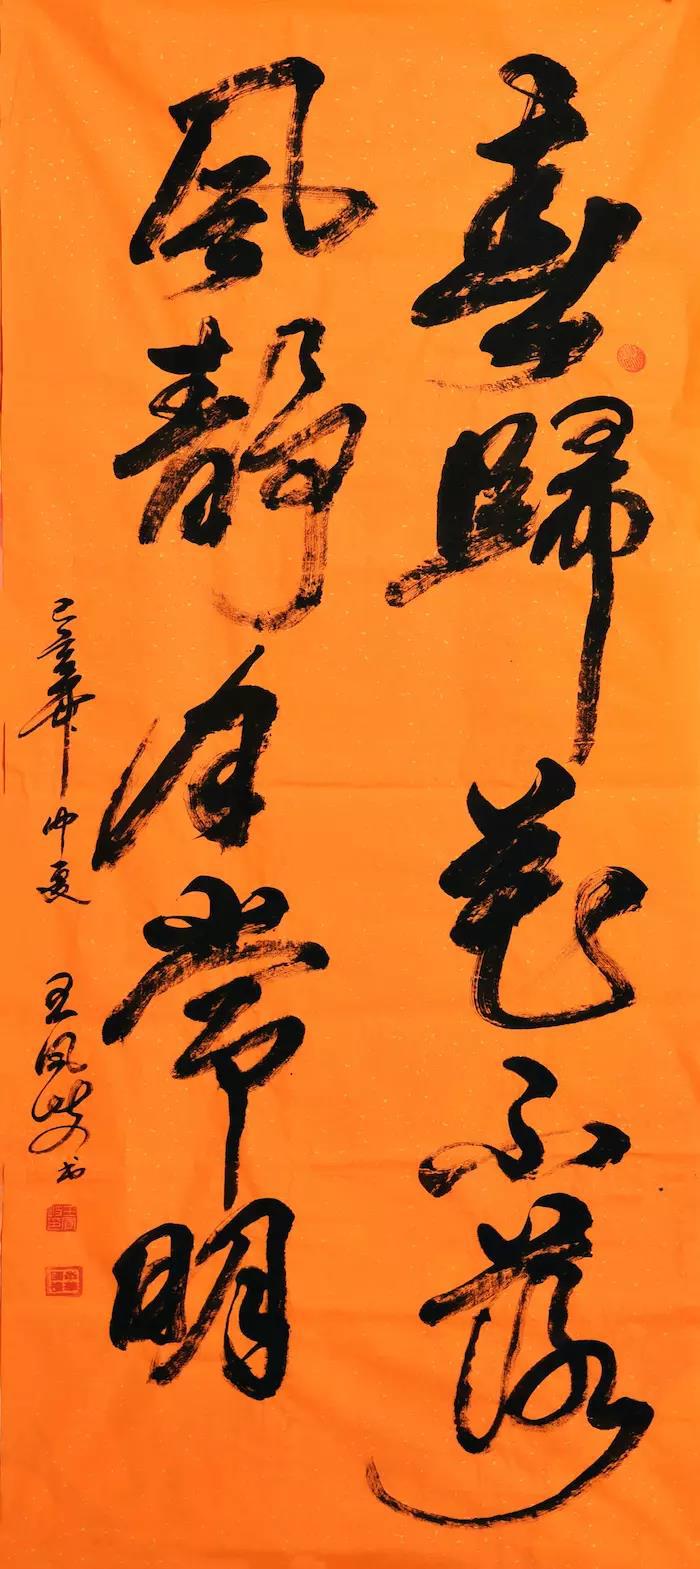 春歸花不落
風靜月常明
己亥年仲夏 王凤岐书